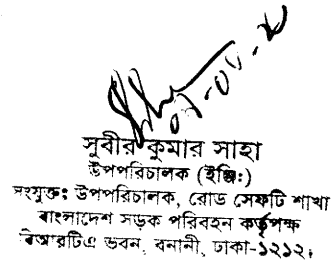 সুবীর কুমার সাহা
উপপরিচালক (ইঞ্জিঃ)
সংযুক্ত: উপপরিচালক, রোড সেফটি শাখা
বাংলাদেশ সড়ক পরিবহন কর্তৃপক্ষ
বিআরটিএ ভবন, বনানী, ঢাকা-১২১২।